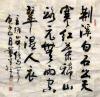 荊溪白石出天
寒紅葉稀山
路元無雨空
翠濕人衣